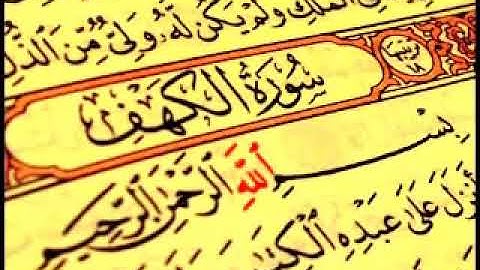 فِي ٱلْمُلْكِ وَلَمْ يَكُن لَّهُۥ وَلِيٌّ مِّنَ ٱلذُّلِّ
سُورَةُ الْكَهْفِ
بِسْمِ ٱللَّهِ ٱلرَّحْمَٰنِ ٱلرَّحِيمِ
أَنزَلَ عَلَىٰ عَبْدِهِ ٱلْكِتَٰبَ